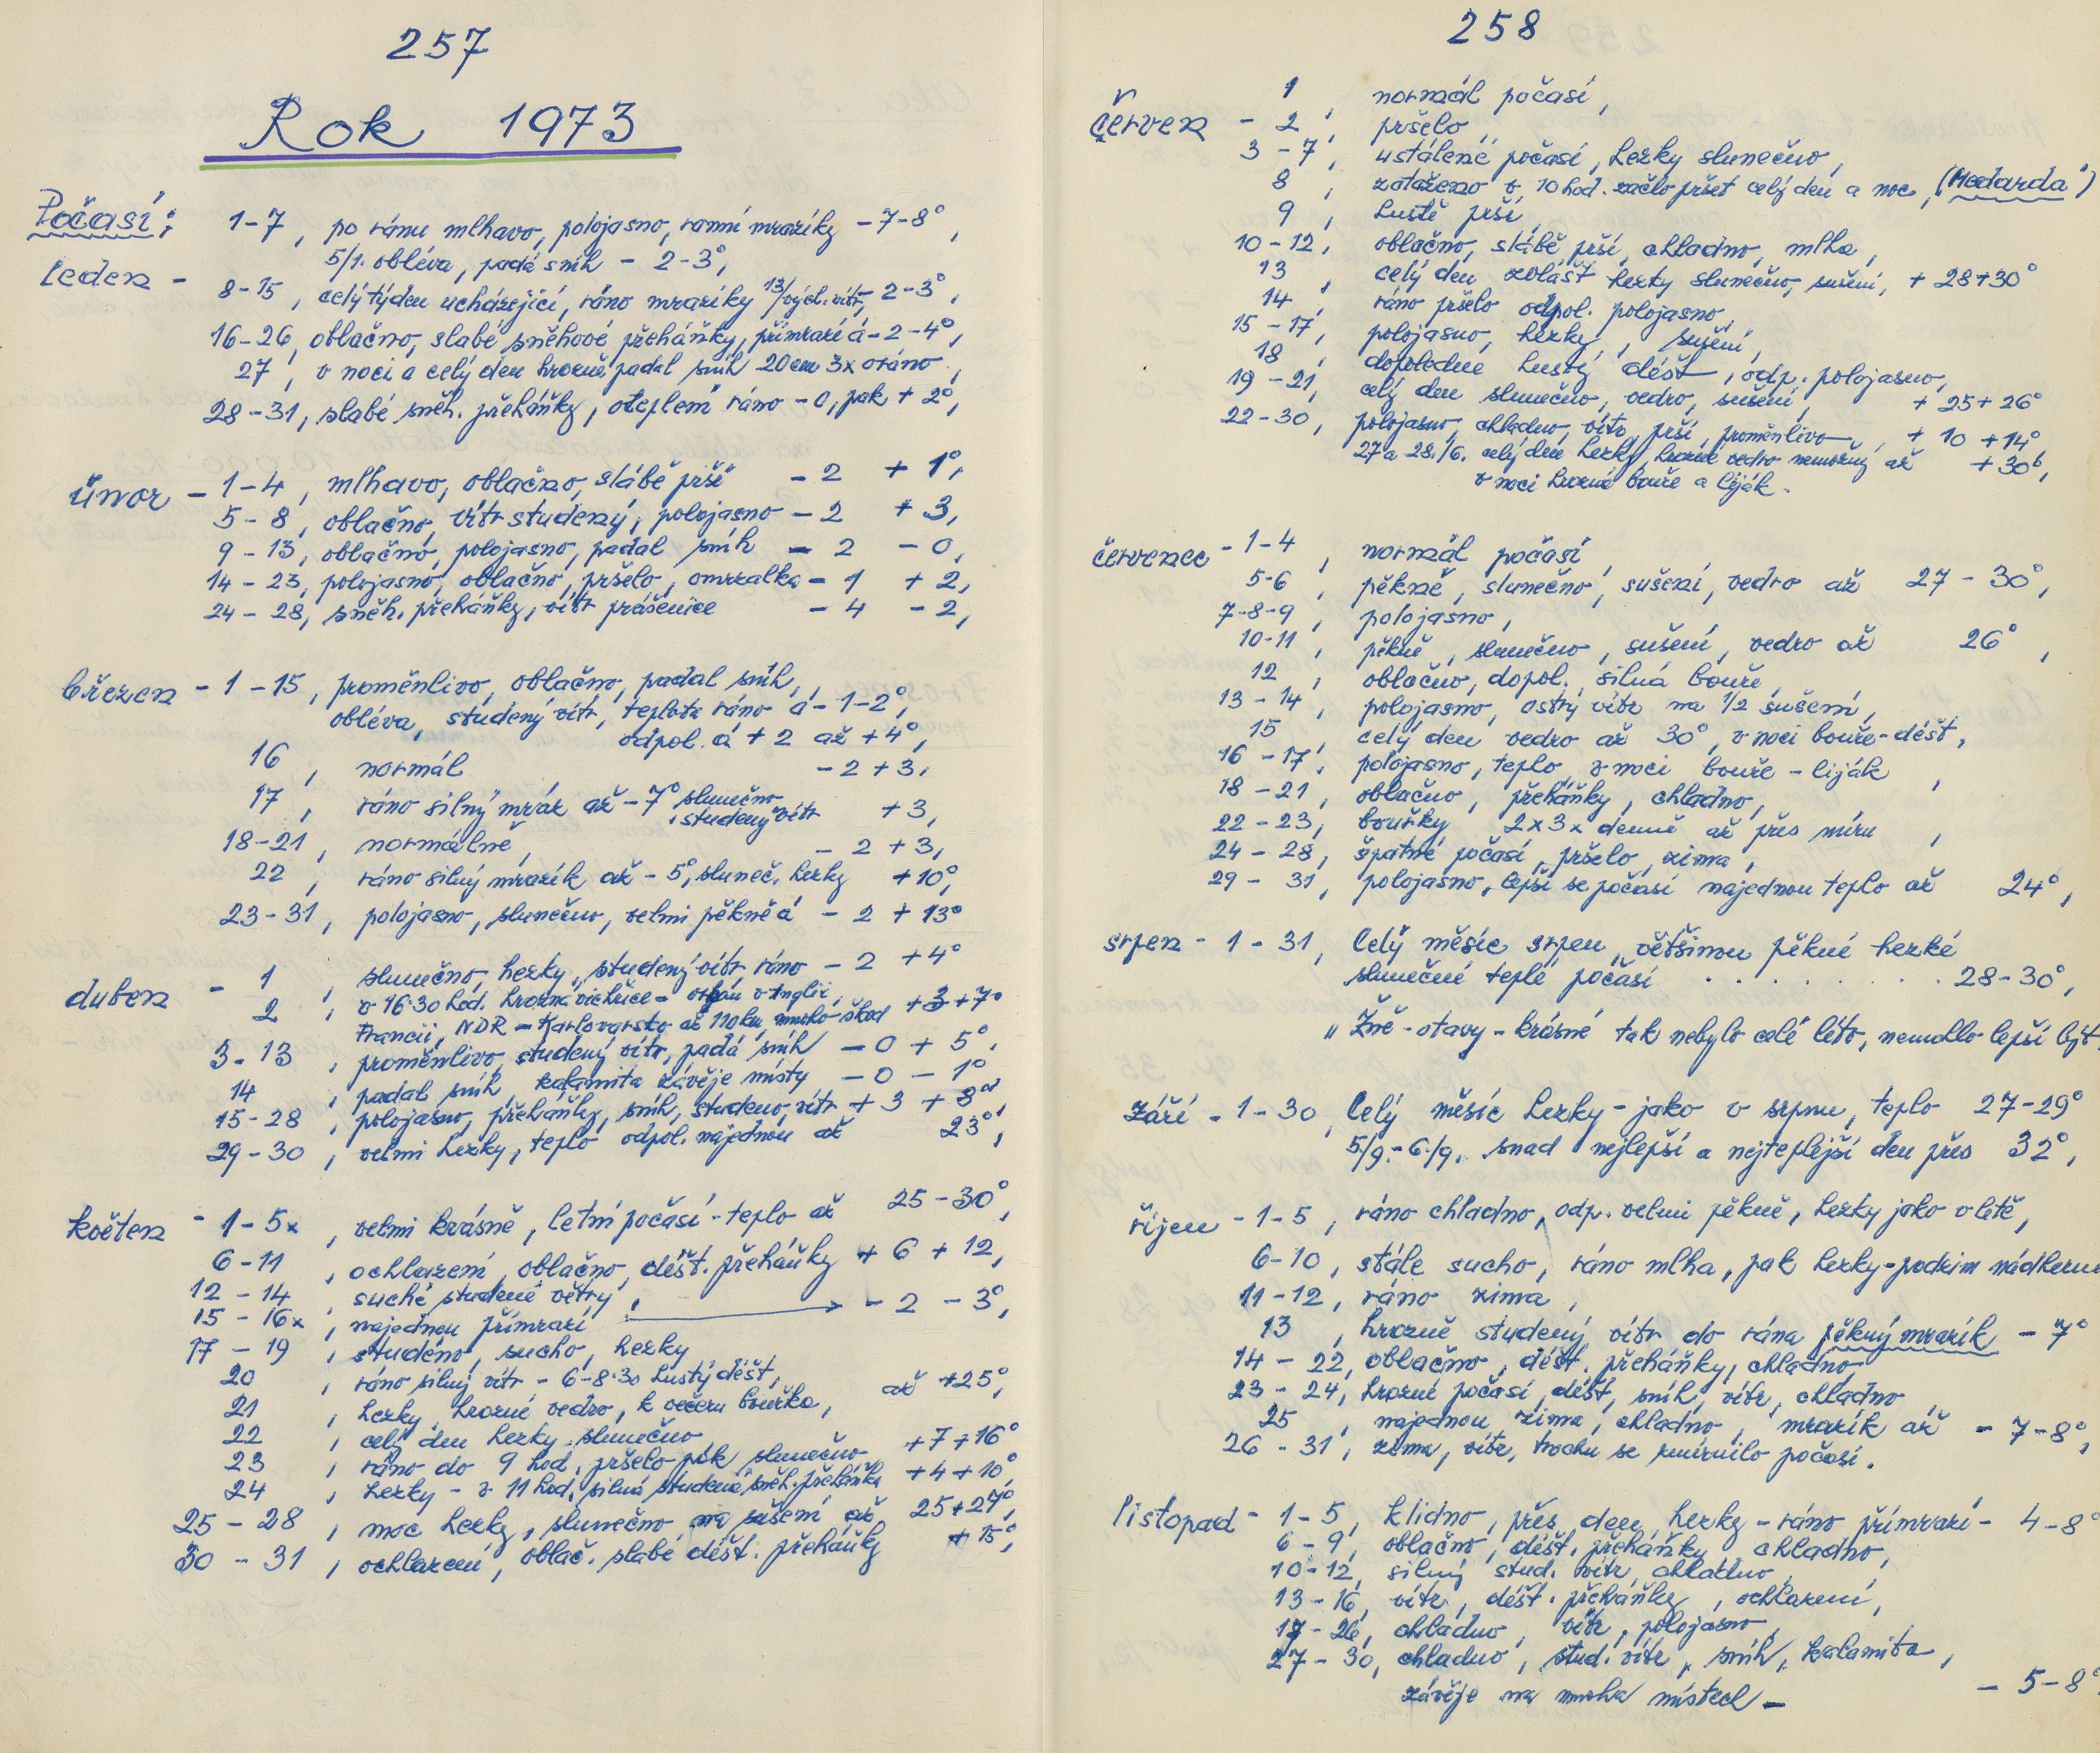 257
Rok 1973
Počasí; 1-7, po ránu mlhavo, polojasno, ranní mrazíky - 7-8°,
5/1. obléva, padá sníh - 2-3°,
leden - 8-15, celý týden ucházející, ráno mrazíky 13/vých. vítr, - 2-3°,
16-26, oblačno, slabé sněhové přeháňky, přimrazí á - 2-4°,
27, v noci a celý den hrozně padal sníh 20cm 3x oráno,
28-31, slabé sněh. přeháňky, oteplení ráno - 0, pak + 2°,
únor - 1-4, mlhavo, oblačno, slábě prší - 2 + 1°,
5-8, oblačno, vítr studený, polojasno - 2 + 3,
9-13, oblačno, polojasno, padal sníh - 2 - 0,
14-23, polojasno, oblačno, pršelo, omrzalka - 1 + 2,
24-28, sněh. přeháňky, vítr prášenice - 4 - 2,
březen - 1-15, proměnlivo, oblačno, padal sníh,
obléva, studený vítr, teplota ráno á - 1-2°,
odpol. á + 2 až + 4°,
16, normál - 2 + 3,
17, ráno silný mráz až - 7° slunečno, studený vítr + 3,
18-21, normálně, - 2 + 3,
22, ráno silný mrazík až - 5°, sluneč. hezky + 10°,
23-31, polojasno, slunečno, velmi pěkně á - 2 + 13°
duben - 1, slunečno, hezky, studený vítr ráno - 2 + 4°
2, v 16.30 hod. hrozná vichřice - orkán v Anglii, + 3 + 7°
Francii, NDR - Karlovarsko až 110km mnoho škod
3-13, proměnlivo, studený vítr, padá sníh - 0 + 5°,
14, padal sníh, kalamita závěje místy - 0 - 1°
15-28, polojasno, přeháňky, sníh, studeno, vítr + 3 + 8°,
29-30, velmi hezky, teplo odpol. najednou až 23°,
květen - 1-5x, velmi krásně, letní počasí - teplo až 25-30°,
6-11, ochlazení, oblačno, déšť. přeháňky + 6 + 12,
12-14, suché studené větry,
15-16x, najednou přimrazí - 2 - 3°,
17-19, studeno, sucho, hezky
20, ráno silný vítr - 6-8.30 hustý déšť,
21, hezky, hrozné vedro, k večeru bouřka, až +25°,
22, celý den hezky slunečno
23, ráno do 9 hod. pršelo pak slunečno + 7 + 16°
24, hezky - v 11 hod. silná studená sněh. přeháňka + 4 + 10°,
25-28, moc hezky, slunečno na sušení až 25+27°,
30-31, ochlazení, oblač. slabé déšť. přeháňky + 15°,
258
1, normál počasí,
Červen - 2, pršelo,
3-7, ustálené počasí, hezky slunečno,
8, zataženo v 10 hod. začlo pršet celý den a noc, (Medarda")
9, hustě prší,
10-12, oblačno, slábě prší, chladno, mlha,
13, celý den zvlášť hezky slunečno, sušení, + 28+30°
14, ráno pršelo odpol. polojasno,
15-17, polojasno, hezky, sušení,
18, dopoledne hustý déšť, odp. polojasno,
19-21, celý den slunečno, vedro, sušení, + 25+26°
22-30, polojasno, chladno, vítr, prší, proměnlivo, + 10 + 14°
27 a 28./6. celý den hezky, hrozné vedro nemožný až + 30°,
v noci hrozná bouře a liják.
červenec - 1-4, normál počasí,
5-6, pěkně, slunečno, sušení, vedro až 27-30°,
7-8-9, polojasno,
10-11, pěkně, slunečno, sušení, vedro až 26°,
12, oblačno, dopol. silná bouře,
13-14, polojasno, ostrý vítr na 1/2 sušení,
15, celý den vedro až 30°, v noci bouře-déšť,
16-17, polojasno, teplo, v noci bouře - liják,
18-21, oblačno, přeháňky, chladno,
22-23, bouřky 2x3x denně až přes míru,
24-28, špatné počasí, pršelo, zima,
29-31, polojasno, lepší se počasí najednou teplo až 24°,
srpen - 1-31, Celý měsíc srpen, většinou pěkné hezké
slunečné teplé počasí . . . . . . . 28-30°,
„Žně-otavy-krásné tak nebylo celé léto, nemohlo lepší být.
září - 1-30, Celý měsíc hezky - jako v srpnu, teplo 27-29°
5/9.-6./9. snad nejlepší a nejteplejší den přes 32°,
říjen - 1-5, ráno chladno, odp. velmi pěkně, hezky jako v létě,
6-10, stále sucho, ráno mlha, pak hezky-podzim nádherný
11-12, ráno zima,
13, hrozně studený vítr do rána pěkný mrazík - 7°
14-22, oblačno, déšť. přeháňky, chladno,
23-24, hrozné počasí, déšť, sníh, vítr, chladno,
25, najednou zima, chladno, mrazík až - 7-8°,
26-31, zima, vítr, trochu se zmírnilo počasí.
listopad - 1-5, klidno, přes den hezky - ráno přimrazí - 4-8°
6-9, oblačno, déšť. přeháňky chladno,
10-12, silný stud. vítr, chladno,
13-16, vítr, déšť. přeháňky, ochlazení,
17-26, chladno, vítr, polojasno,
27-30, chladno, stud. vítr, sníh, kalamita,
závěje na mnoha místech - - 5-8°